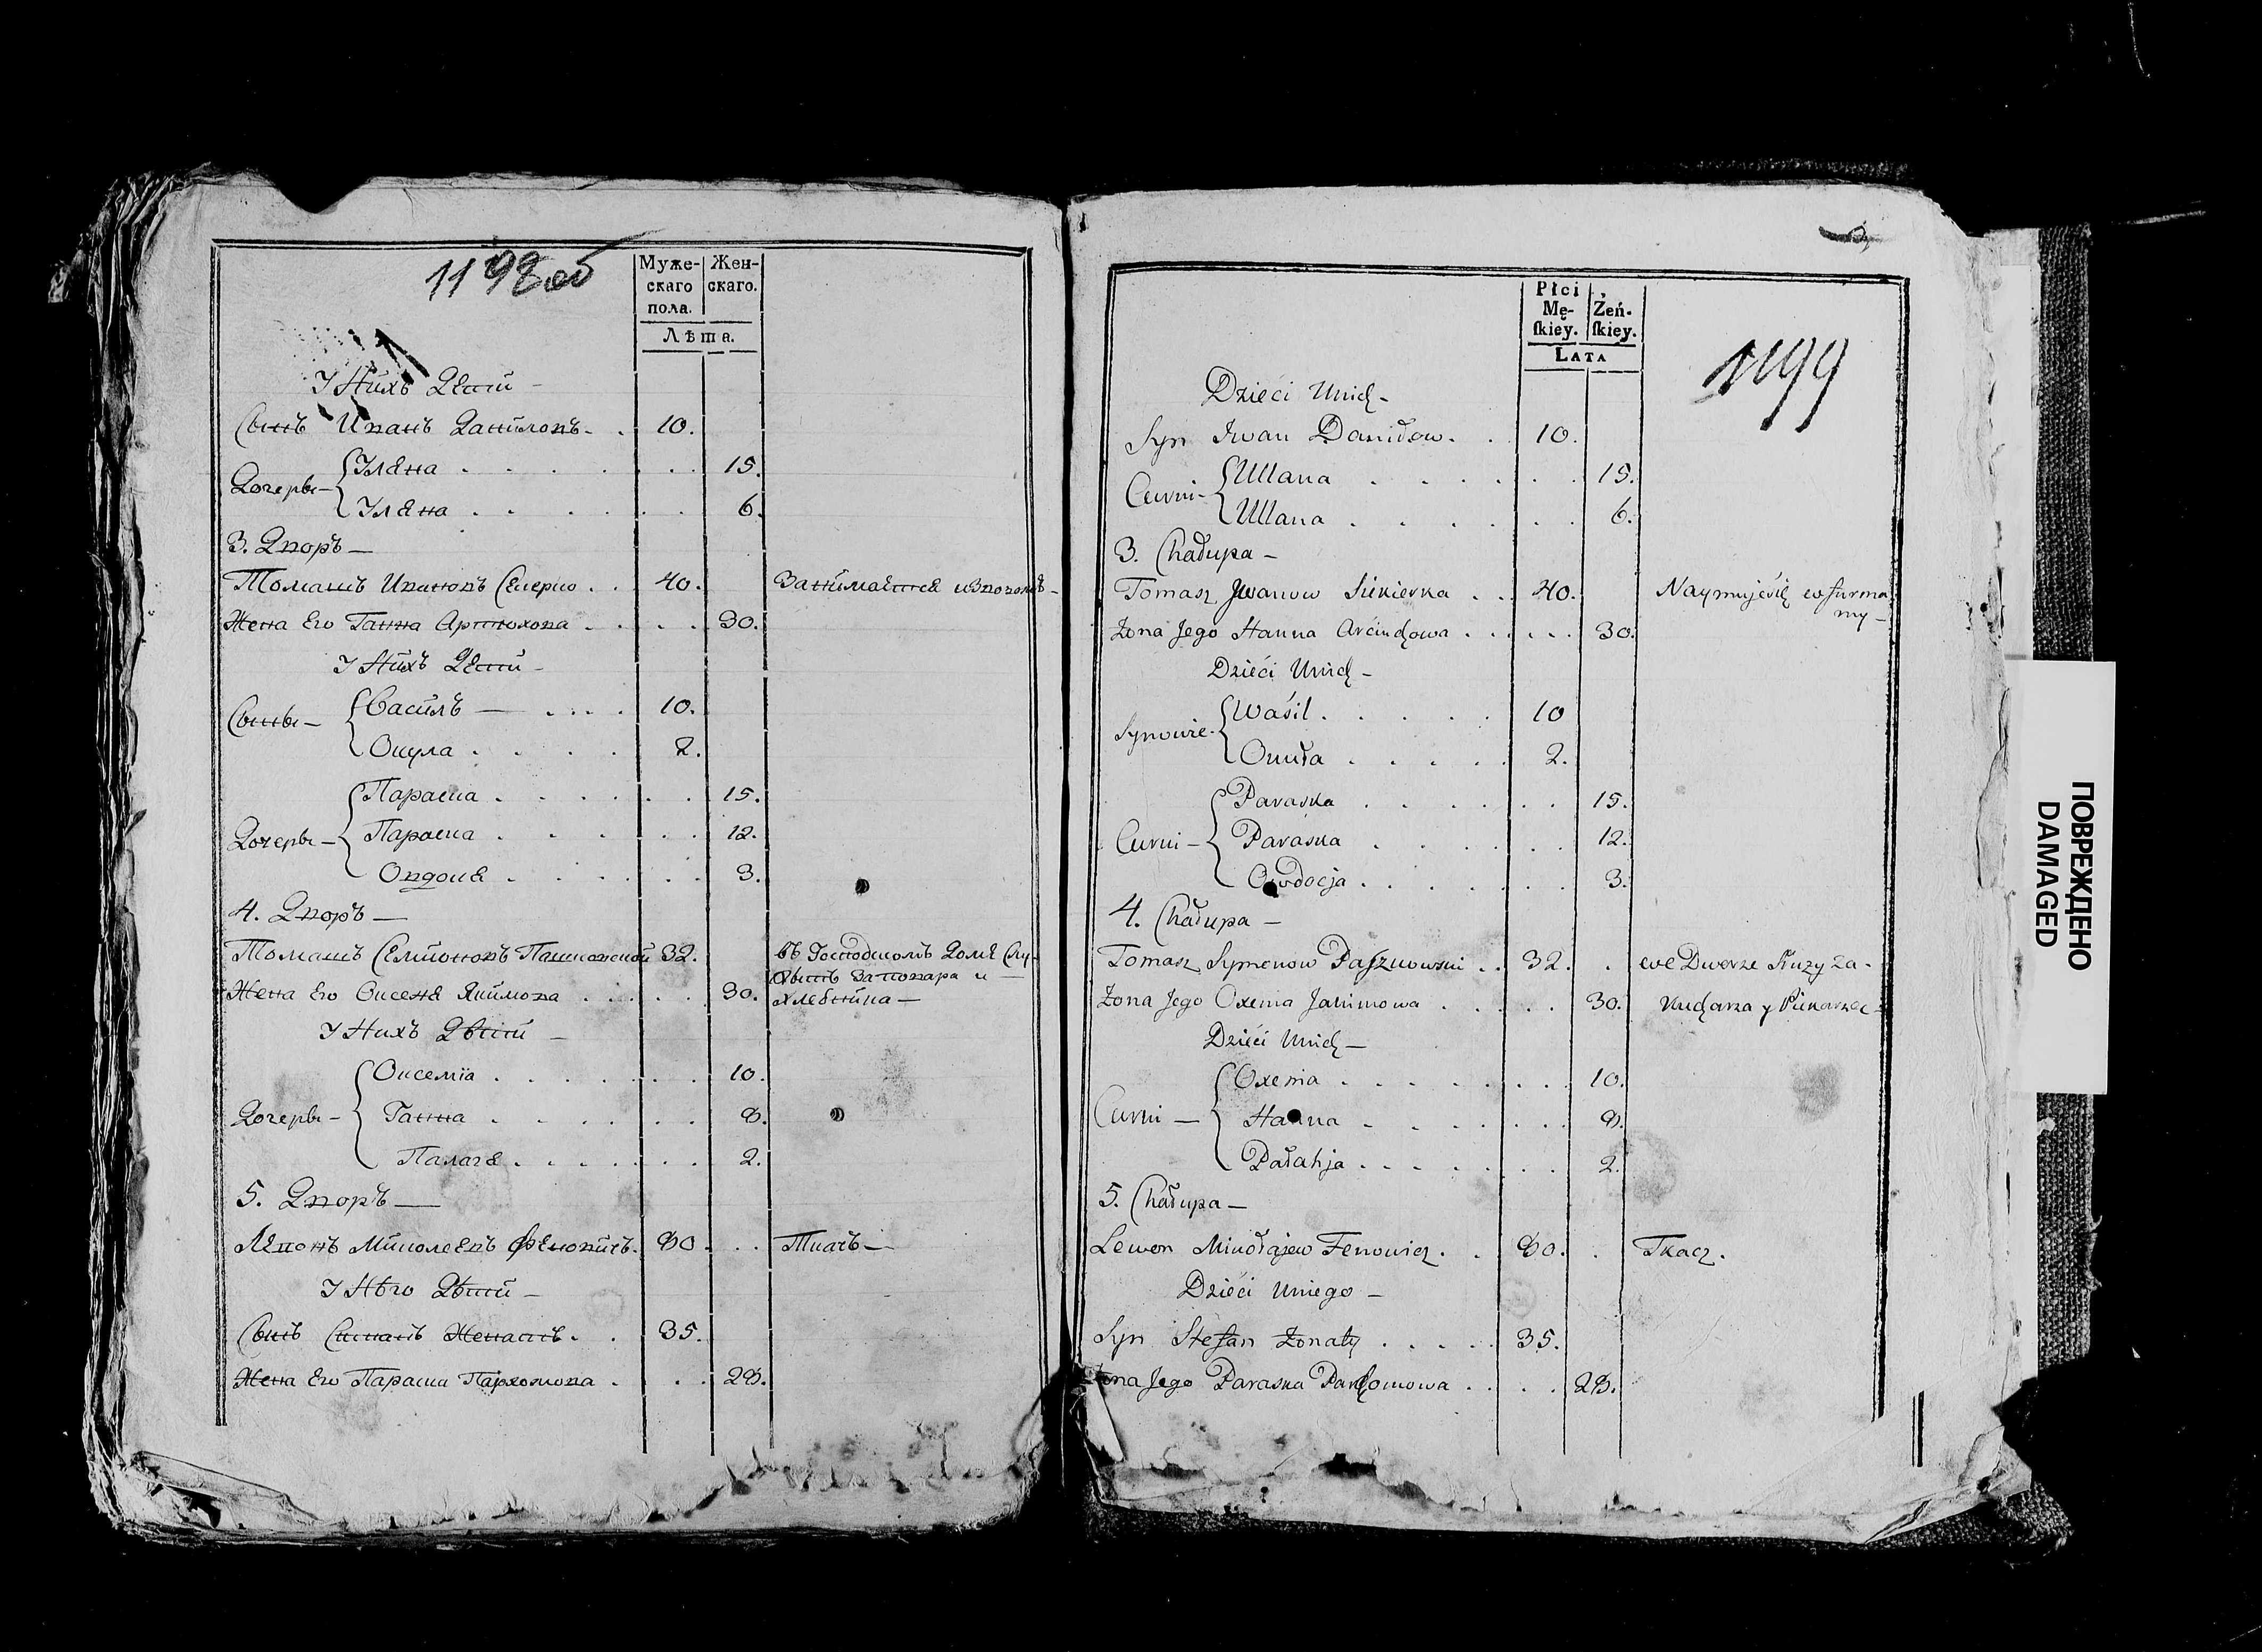 1198об
Муже-
скаго
пола.
Жен-
скаго.
Лѣта.
У Нихъ Дети -
Сынъ Иванъ Даниловъ - . 10.
Дочеры - { Уляна . . . . . . 15.
Уляна . . . . . . 6.
3. Дворъ —
Томашъ Ивановъ . . 40. Занимается извозомъ -
Жена Его Ганна Артюхова . . . . 30.
У Нихъ Дети -
Сыны - { Василь — . . . . 10.
Окула . . . . 2.
Дочеры - { Параска . . . . . . 15.
Параска . . . . . . 12.
Овдоця . . . . . . 3.
4. Дворъ —
Томашъ Семионовъ Пашковский 32. въ Господскомъ Доме Слу-
житъ за повара и
Жена Его Оксеня Якимова . . . . . 30. Хлебника —
У Нихъ Дѣти -
Дочеры - { Оксемія . . . . . . 10.
Ганна . . . . . . 8.
Палагя . . . . . . 2.
5. Дворъ —
Левонъ Миколаевъ Феновичъ. 80 . . Ткачъ —
У Нѣго Дѣти -
Сынъ Стипанъ Женатъ . . 35.
Жена Его Параска Пархомова . . . 28.
Płci
Mę-
ſkiey.
Żeń-
ſkiey.
Lata
1199
Dzieći Unich -
Syn Iwan Daniłow . . 10.
Curki - { Ullana . . . . . . 15.
Ullana . . . . . . 6.
3. Chałupa -
Tomasz Jwanow Siekierka . . 40. Naymujeśię w furma
ny -
Żona Jego Hanna Arciuchowa . . . . . 30.
Dzieći Unich -
Synowie - { Waśil . . . . . 10
Okuła . . . . . 2.
Curki - { Paraska . . . . . . 15.
Paraska . . . . . . 12.
Owdocja . . . . . . 3.
4. Chałupa -
Tomasz Symonow Paszkowski . . 32. . we Dworze Służy za -
Żona Jego Oxenia Jakimowa . . . . . 30. Kucharza y Piekarza -
Dzieći Unich —
Curki — { Oxenia . . . . . . 10.
Hanna . . . . . . 8.
Pałahja . . . . . . 2.
5. Chałupa —
Lewon Mikołajew Fenowicz . . 80. . Tkacz.
Dzieći Uniego -
Syn Stefan Żonaty . . . . . 35.
Żona Jego Paraska Parchomowa . . . . 28.
ПОВРЕЖДЕНО
DAMAGED